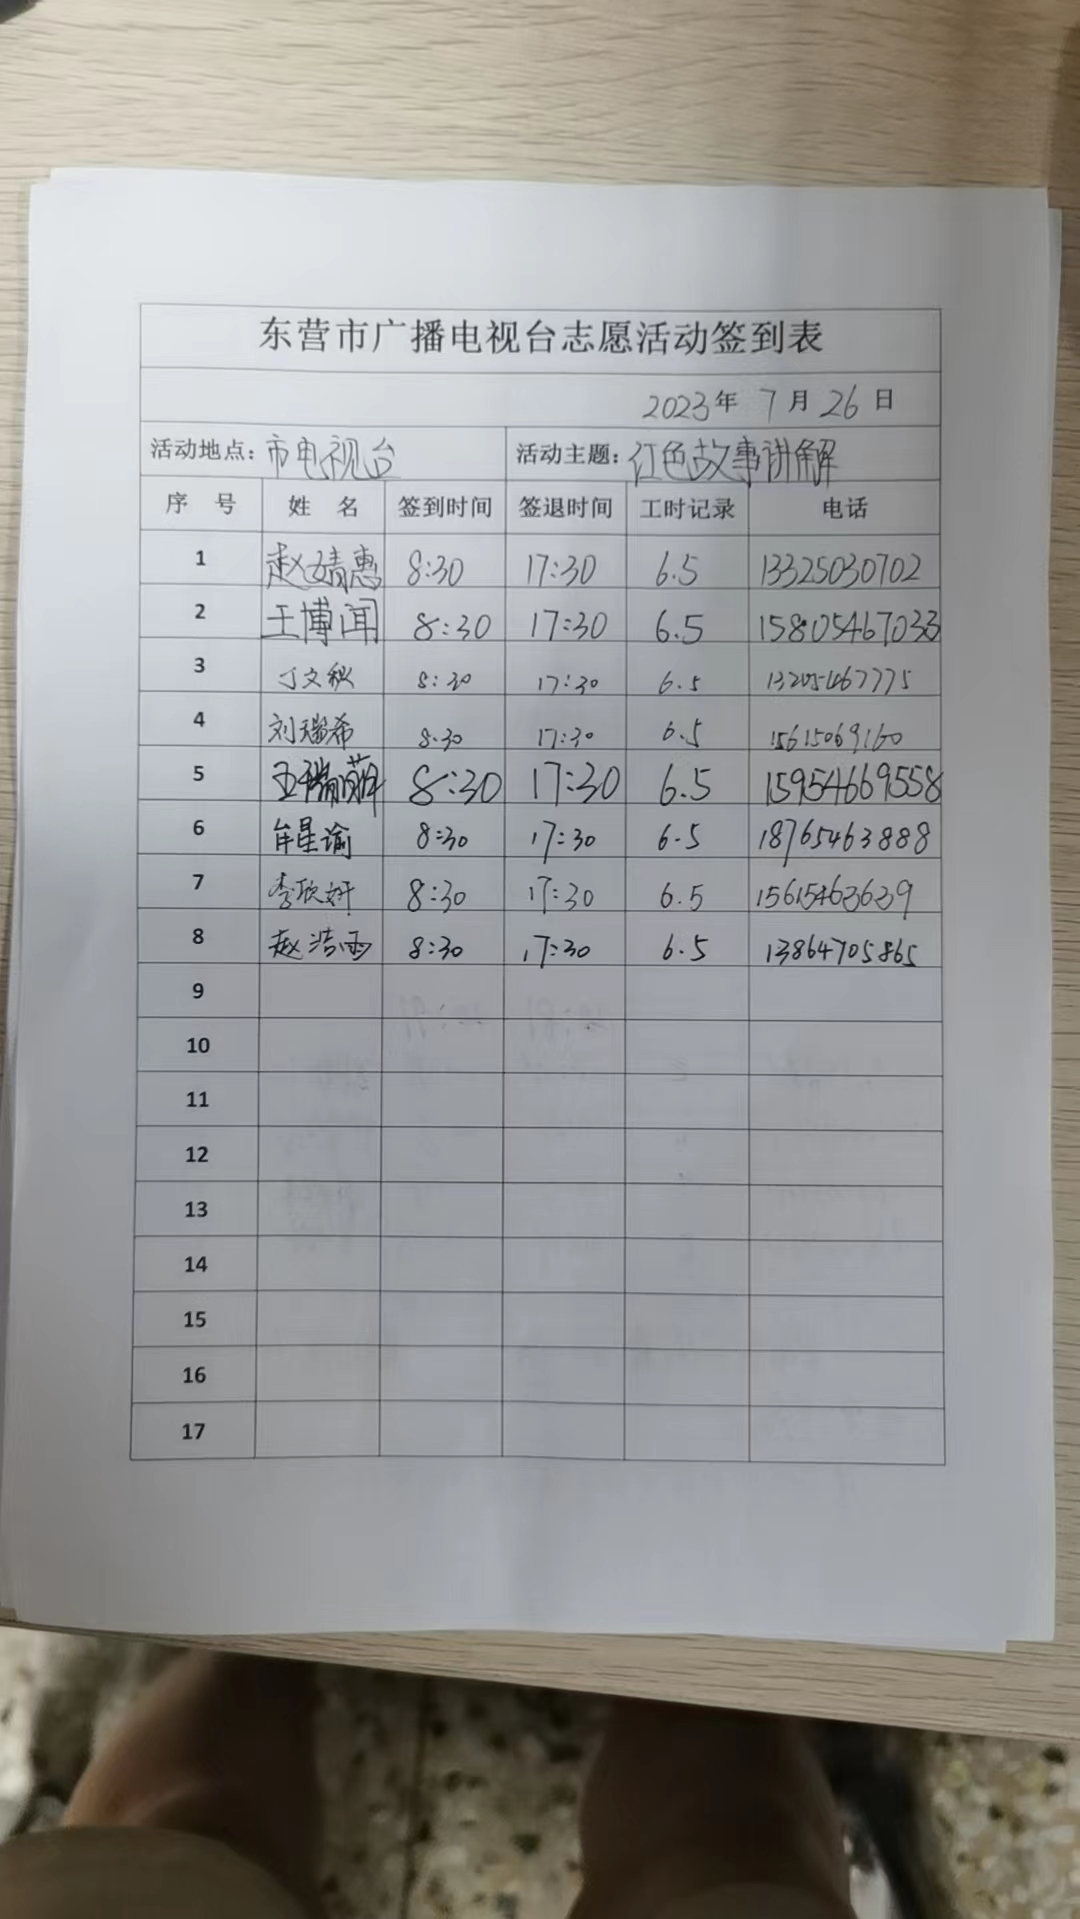 东营市广播电视台志愿活动签到表
2023年 7月26日
活动地点：市电视台 活动主题：红色故事讲解
序 号 姓 名 签到时间 签退时间 工时记录 电话
1 赵婧惠 8:30 17:30 6.5 13325030702
2 王博闻 8:30 17:30 6.5 15805467033
3 丁文秋 8:30 17:30 6.5 13205467775
4 刘瑞希 8:30 17:30 6.5 15615069160
5 王瑞萌 8:30 17:30 6.5 15954669558
6 牟星谕 8:30 17:30 6.5 18765463888
7 李欣妍 8:30 17:30 6.5 15615463639
8 赵浩雨 8:30 17:30 6.5 13864705865
9
10
11
12
13
14
15
16
17